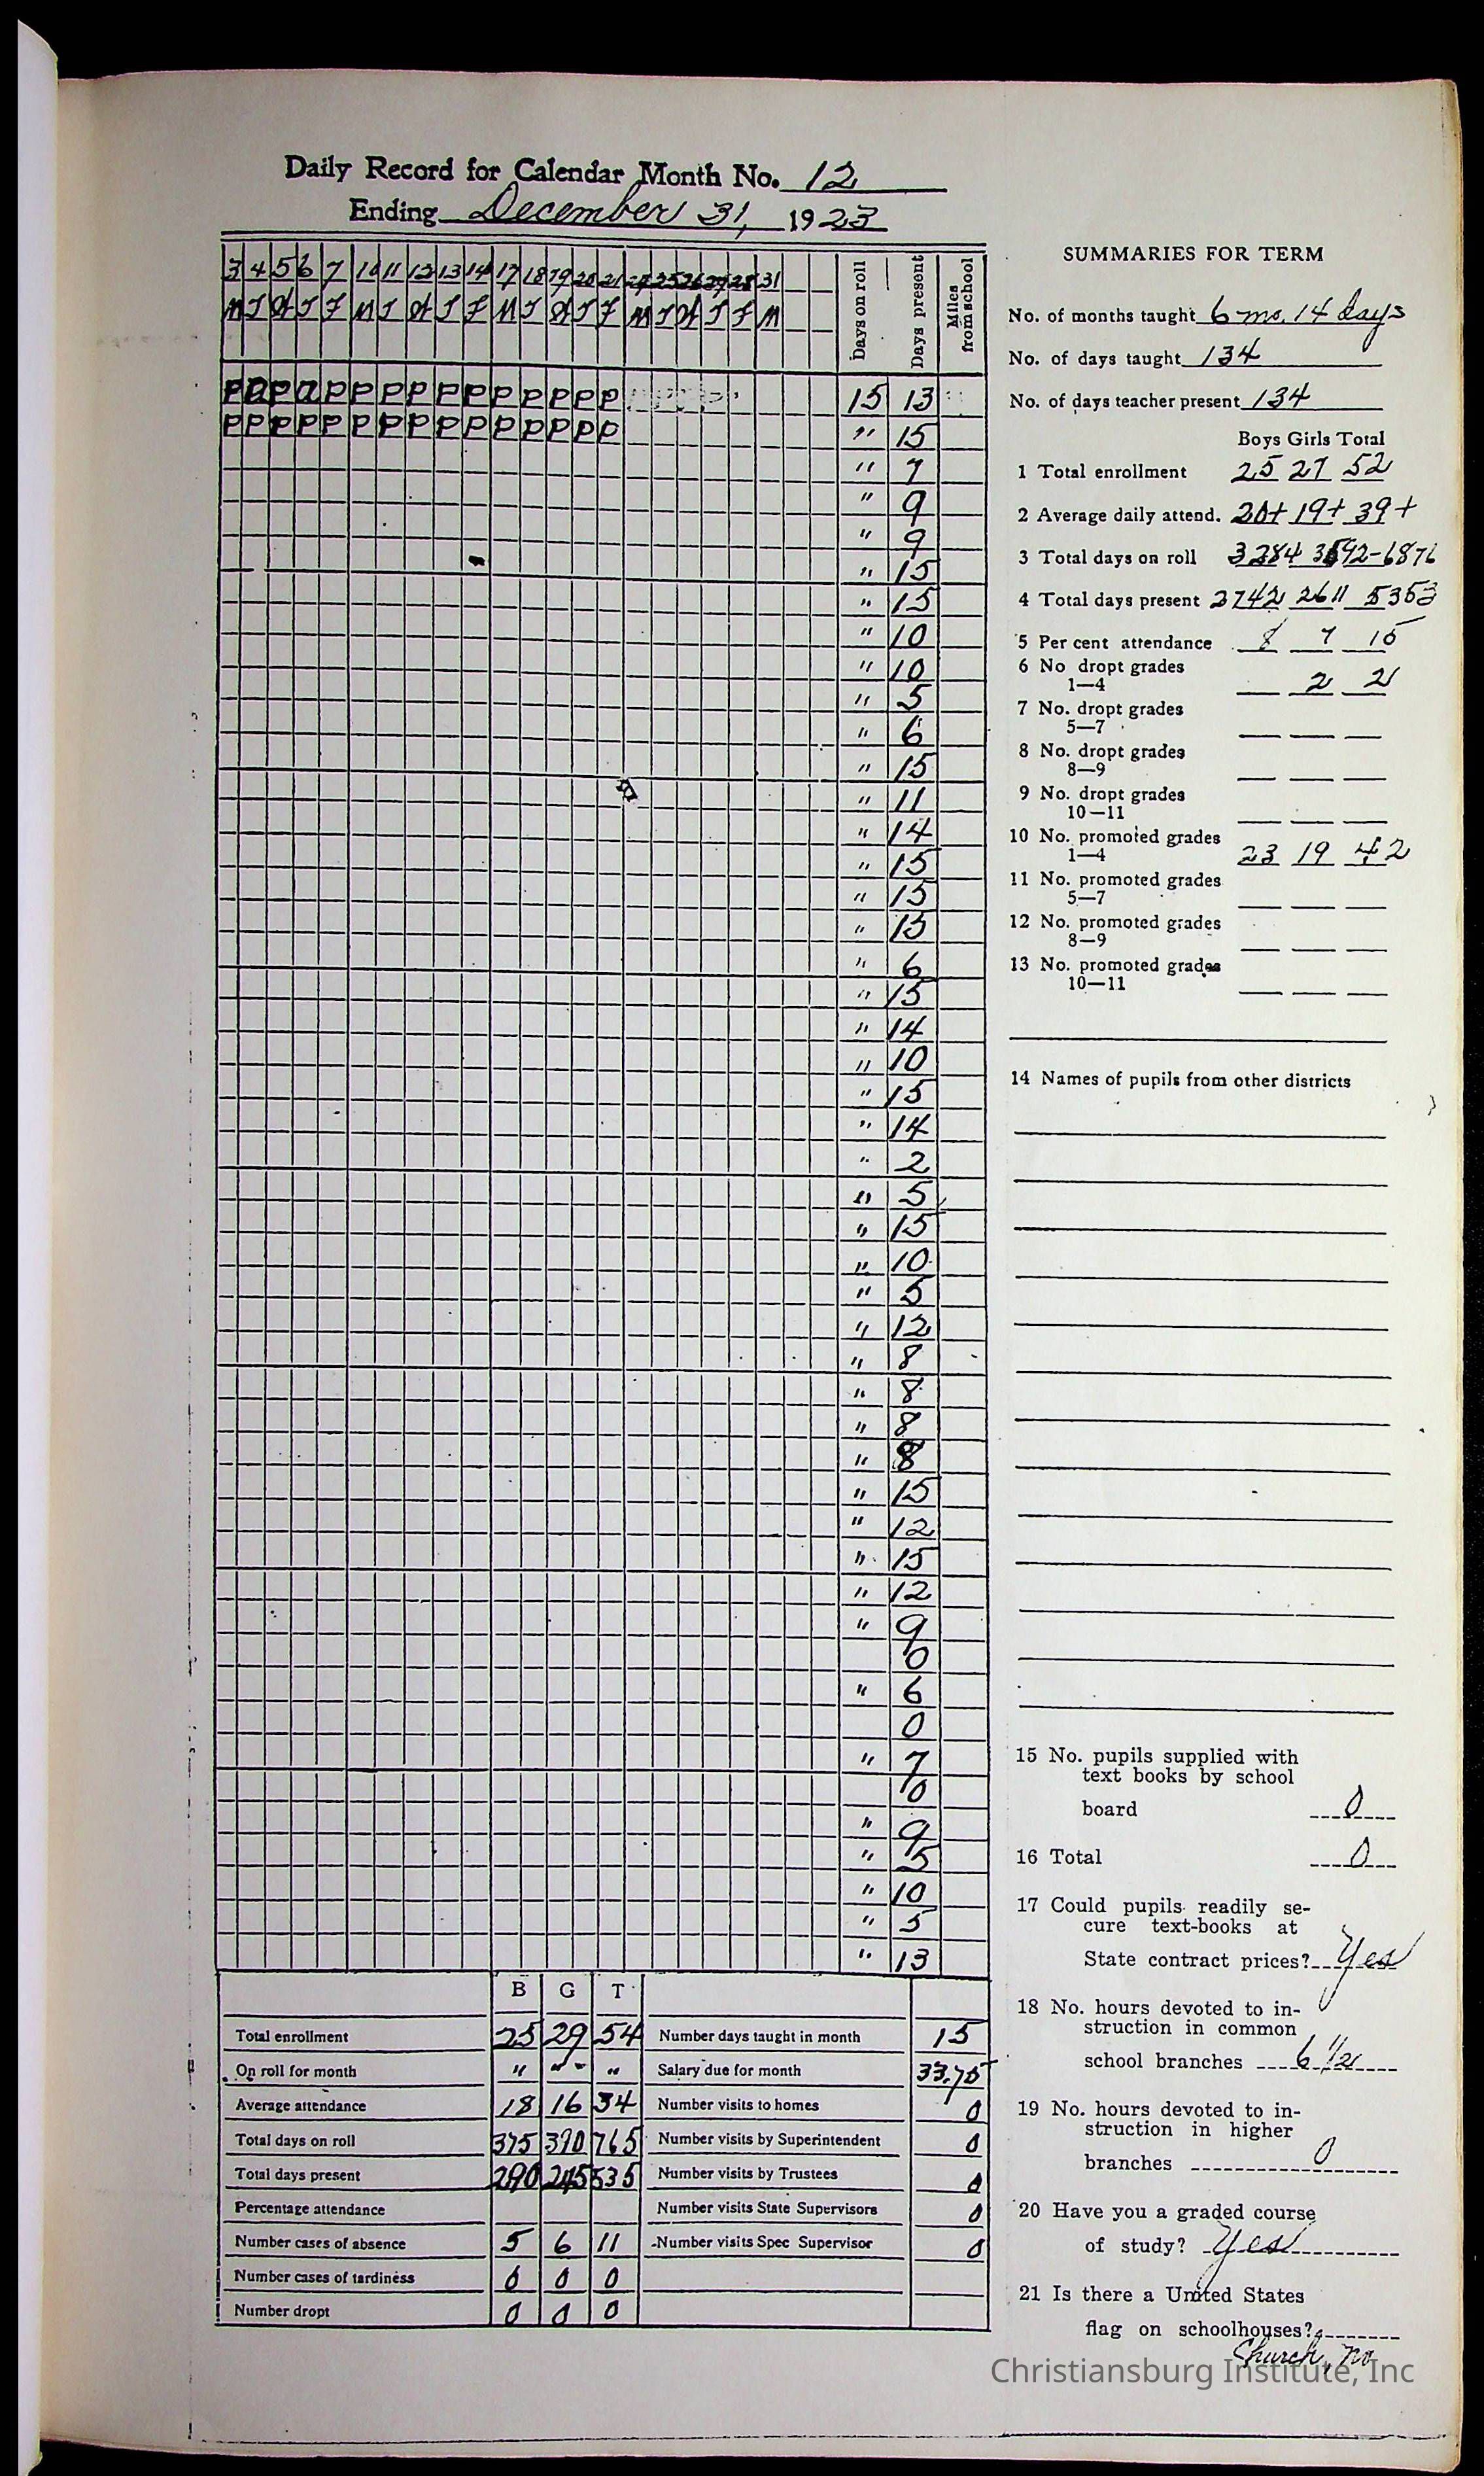 Daily Record for Calendar Month No. 12
Ending December 31, 1923
3 4 5 6 7 10 11 12 13 14 17 18 19 20 21 24 25 26 27 28 31 Days on roll Days present Miles from school
M T W T F M T W T F M T W T F M T W T F M
P a P a P P P P P P P P P P P 15 13
P P P P P P P P P P P P P P P " 15
" 7
" 9
" 9
" 15
" 15
" 10
" 10
" 5
" 6
" 15
" 11
" 14
" 15
" 15
" 15
" 6
" 15
" 14
" 10
" 15
" 14
" 2
" 5
" 15
" 10
" 5
" 12
" 8
" 8
" 8
" 8
" 15
" 12
" 15
" 12
" 9
0
" 6
0
" 7
0
" 9
" 5
" 10
" 5
" 13
B G T
Total enrollment 25 29 54 Number days taught in month 15
On roll for month " " " Salary due for month 33.75
Average attendance 18 16 34 Number visits to homes 0
Total days on roll 375 390 765 Number visits by Superintendent 0
Total days present 290 245 535 Number visits by Trustees 0
Percentage attendance Number visits State Supervisors 0
Number cases of absence 5 6 11 Number visits Spec Supervisor 0
Number cases of tardiness 0 0 0
Number dropt 0 0 0
SUMMARIES FOR TERM
No. of months taught 6 mo. 14 days
No. of days taught 134
No. of days teacher present 134
Boys Girls Total
1 Total enrollment 25 27 52
2 Average daily attend. 20+ 19+ 39+
3 Total days on roll 3284 3592-6876
4 Total days present 2742 2611 5353
5 Per cent attendance 8 7 15
6 No dropt grades
1—4 2 2
7 No. dropt grades
5—7
8 No. dropt grades
8—9
9 No. dropt grades
10—11
10 No. promoted grades
1—4 23 19 42
11 No. promoted grades
5—7
12 No. promoted grades
8—9
13 No. promoted grades
10—11
14 Names of pupils from other districts
15 No. pupils supplied with
text books by school
board 0
16 Total 0
17 Could pupils readily se-
cure text-books at
State contract prices? Yes
18 No. hours devoted to in-
struction in common
school branches 6 1/2
19 No. hours devoted to in-
struction in higher
branches 0
20 Have you a graded course
of study? Yes
21 Is there a United States
flag on schoolhouses?
Church, no
Christiansburg Institute, Inc